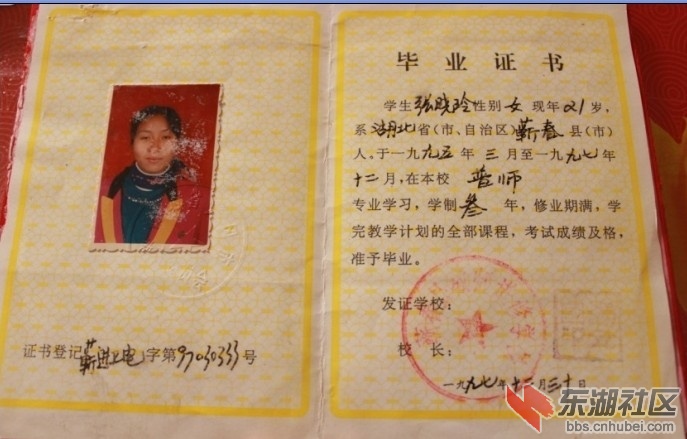 证书登记蕲进电字第9703033号
毕业证书
学生张晓玲性别女现年21岁,
系湖北省(市、自治区)蕲春县(市)
人。于一九九五年三月至一九九七年
十二月,在本校 普师
专业学习,学制叁年,修业期满,学
完教学计划的全部课程,考试成绩及格,
准予毕业。
发证学校:
校长:
一九九七年十二月三十日
东湖社区
bbs.cnhubei.com